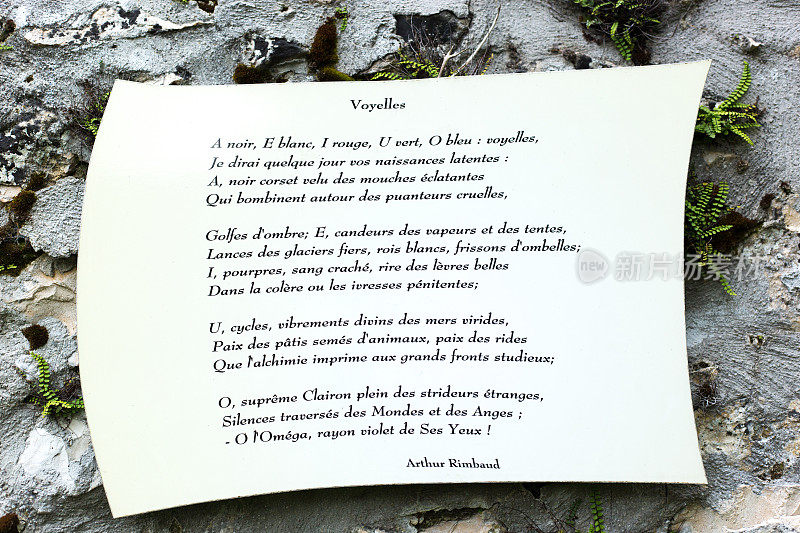 Voyelles
A noir, E blanc, I rouge, U vert, O bleu : voyelles,
Je dirai quelque jour vos naissances latentes :
A, noir corset velu des mouches éclatantes
Qui bombinent autour des puanteurs cruelles,
Golfes d'ombre; E, candeurs des vapeurs et des tentes,
Lances des glaciers fiers, rois blancs, frissons d'ombelles;
I, pourpres, sang craché, rire des lèvres belles
Dans la colère ou les ivresses pénitentes;
U, cycles, vibrements divins des mers virides,
Paix des pâtis semés d'animaux, paix des rides
Que l'alchimie imprime aux grands fronts studieux;
O, suprême Clairon plein des strideurs étranges,
Silences traversés des Mondes et des Anges ;
- O l'Oméga, rayon violet de Ses Yeux !
Arthur Rimbaud
new 新片场